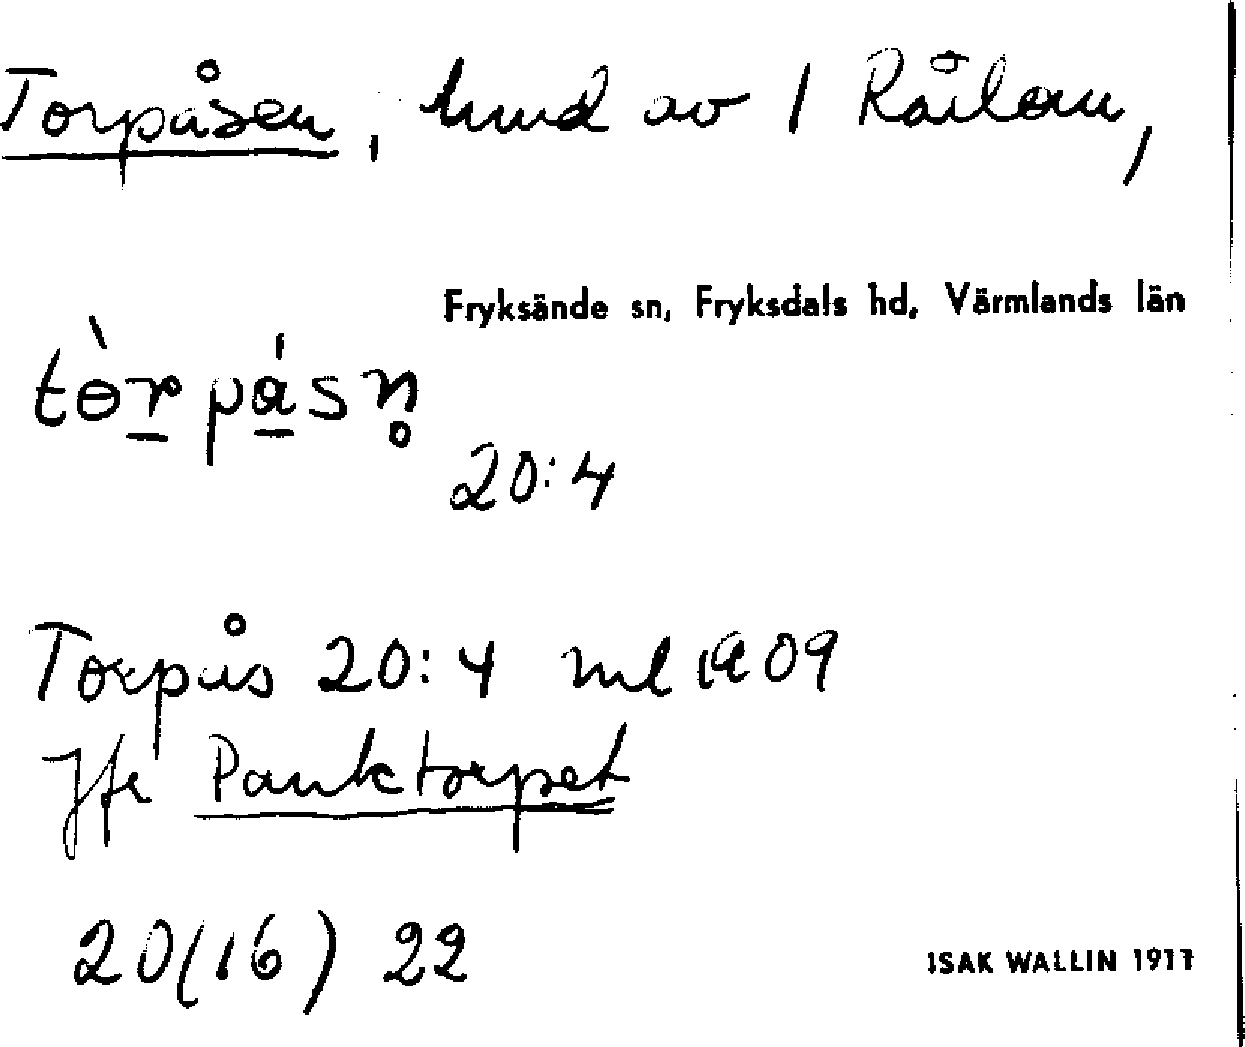 Torpåsen, hmd av 1 Rådom,
Fryksände sn, Fryksdals hd, Värmlands län
20:4
Torpås 20:4 ml 1909
Jfr Panktorpet
20(16) 22
ISAK WALLIN 1911